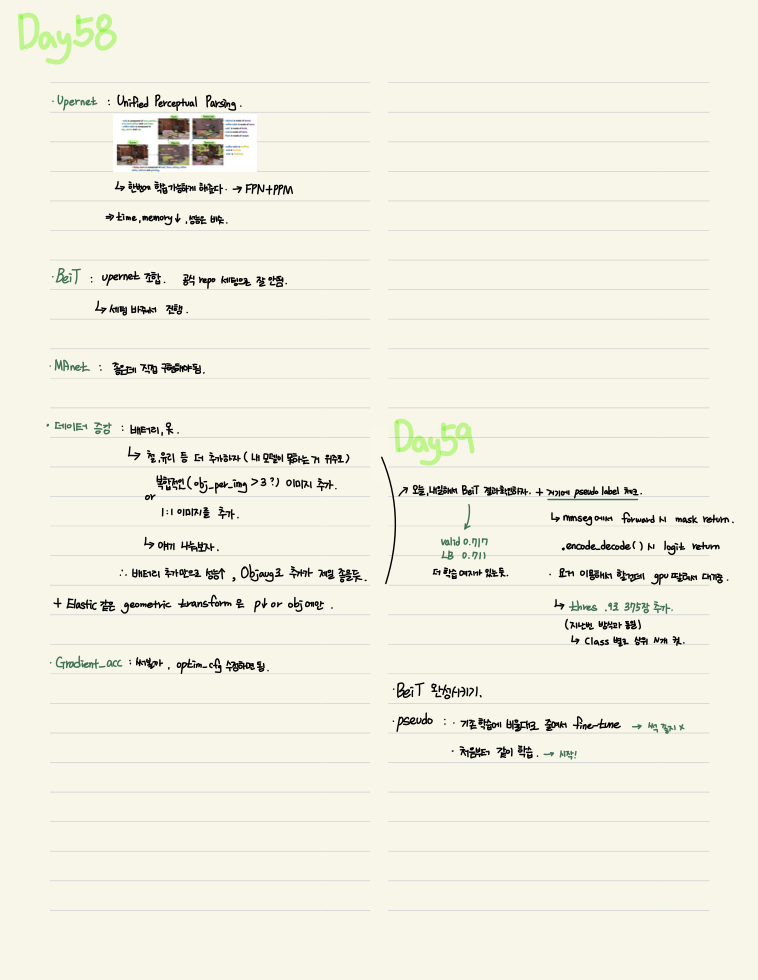 Day58
· Upernet : Unified Perceptual Parsing.
↳ 한번에 학습가능하게 해준다. → FPN+PPM
⇒ time, memory↓, 성능은 비슷.
· BeiT : upernet 조합. 공식 repo 세팅으로 잘 안됨.
↳ 세팅 바꿔서 진행.
· MAnet : 좋은데 직접 구현해야됨.
· 데이터 증강 : 배터리, 옷.
↳ 철, 유리 등 더 추가하자 (내 모델이 못하는 거 위주로)
복합적인 (obj_per_img > 3?) 이미지 추가.
or
1:1 이미지를 추가.
↳ 얘기 나눠보자.
∴ 배터리 추가만으로 성능↑, Objaug로 추가가 제일 좋을듯.
+ Elastic 같은 geometric transform은 p↓ or obj에만.
· Gradient_acc : 써볼까, optim_cfg 수정하면 됨.
Day59
↗ 오늘, 내일해서 BeiT 결과확인하자. + 거기에 pseudo label 체크.
valid 0.717
LB 0.711
더 학습 여지가 있는듯.
↳ mmseg에서 forward 시 mask return.
.encode_decode() 시 logit return
· 요거 이용해서 할건데 gpu 딸려서 대기중.
↳ thres .9로 375장 추가.
(지난번 방식과 동일)
↳ Class 별로 상위 시개 컷.
· BeiT 완성시키기.
· pseudo : · 기존 학습에 비율대로 줄여서 fine-tune → 썩 좋지 x
· 처음부터 같이 학습. → 시작!